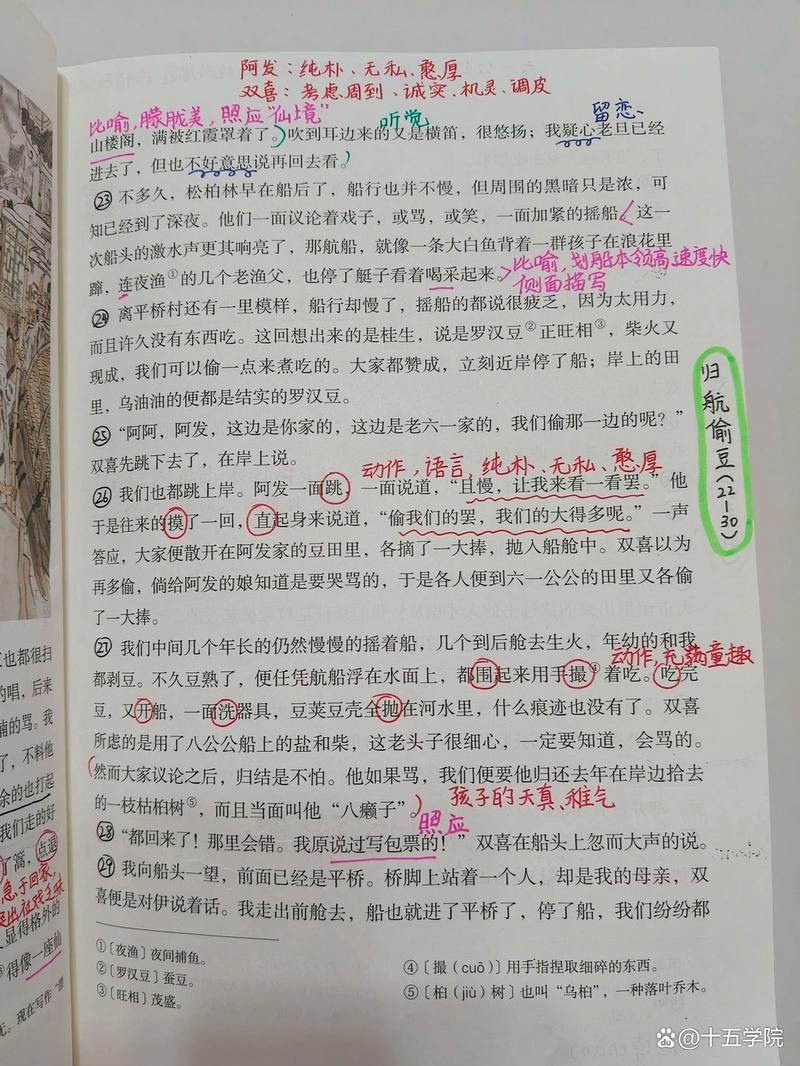 阿发：纯朴、无私、憨厚
双喜：考虑周到、诚实、机灵、调皮
比喻，朦胧美，照应“仙境”
听觉
留恋
山楼阁，满被红霞罩着了。）吹到耳边来的又是横笛，很悠扬；我疑心老旦已经
进去了，但也不好意思说再回去看。
㉓不多久，松柏林早在船后了，船行也并不慢，但周围的黑暗只是浓，可
知已经到了深夜。他们一面议论着戏子，或骂，或笑，一面加紧的摇船。这一
次船头的激水声更其响亮了，那航船，就像一条大白鱼背着一群孩子在浪花里
蹿，连夜渔①的几个老渔父，也停了艇子看着喝采起来。
比喻，划船本领高速度快
侧面描写
㉔离平桥村还有一里模样，船行却慢了，摇船的都说很疲乏，因为太用力，
而且许久没有东西吃。这回想出来的是桂生，说是罗汉豆②正旺相③，柴火又
现成，我们可以偷一点来煮吃的。大家都赞成，立刻近岸停了船；岸上的田
里，乌油油的便都是结实的罗汉豆。
归航偷豆（22—30）
㉕“阿阿，阿发，这边是你家的，这边是老六一家的，我们偷那一边的呢？”
双喜先跳下去了，在岸上说。
动作，语言，纯朴、无私、憨厚
㉖我们也都跳上岸。阿发一面跳，一面说道，“且慢，让我来看一看罢。”他
于是往来的摸了一回，直起身来说道，“偷我们的罢，我们的大得多呢。”一声
答应，大家便散开在阿发家的豆田里，各摘了一大捧，抛入船舱中。双喜以为
再多偷，倘给阿发的娘知道是要哭骂的，于是各人便到六一公公的田里又各偷
了一大捧。
㉗我们中间几个年长的仍然慢慢的摇着船，几个到后舱去生火，年幼的和我
都剥豆。不久豆熟了，便任凭航船浮在水面上，都围起来用手撮④着吃。吃完
动作，充满童趣
豆，又开船，一面洗器具，豆荚豆壳全抛在河水里，什么痕迹也没有了。双喜
所虑的是用了八公公船上的盐和柴，这老头子很细心，一定要知道，会骂的。
（然而大家议论之后，归结是不怕。他如果骂，我们便要他归还去年在岸边拾去
的一枝枯桕树⑤，而且当面叫他“八癞子”。）
孩子的天真、稚气
照应
㉘“都回来了！那里会错。我原说过写包票的！”双喜在船头上忽而大声的说。
㉙我向船头一望，前面已经是平桥。桥脚上站着一个人，却是我的母亲，双
喜便是对伊说着话。我走出前舱去，船也就进了平桥了，停了船，我们纷纷都
①〔夜渔〕夜间捕鱼。
②〔罗汉豆〕蚕豆。
③〔旺相〕茂盛。
④〔撮（cuō）〕用手指捏取细碎的东西。
⑤〔桕（jiù）树〕也叫“乌桕”，一种落叶乔木。
也都很扫
的唱，后来
喃的骂。我
了，不料他
余的也打起
我们走的好
了篙，点退
急于回家，
显得格外的
得像一座仙
无。现在写作“
@十五学院